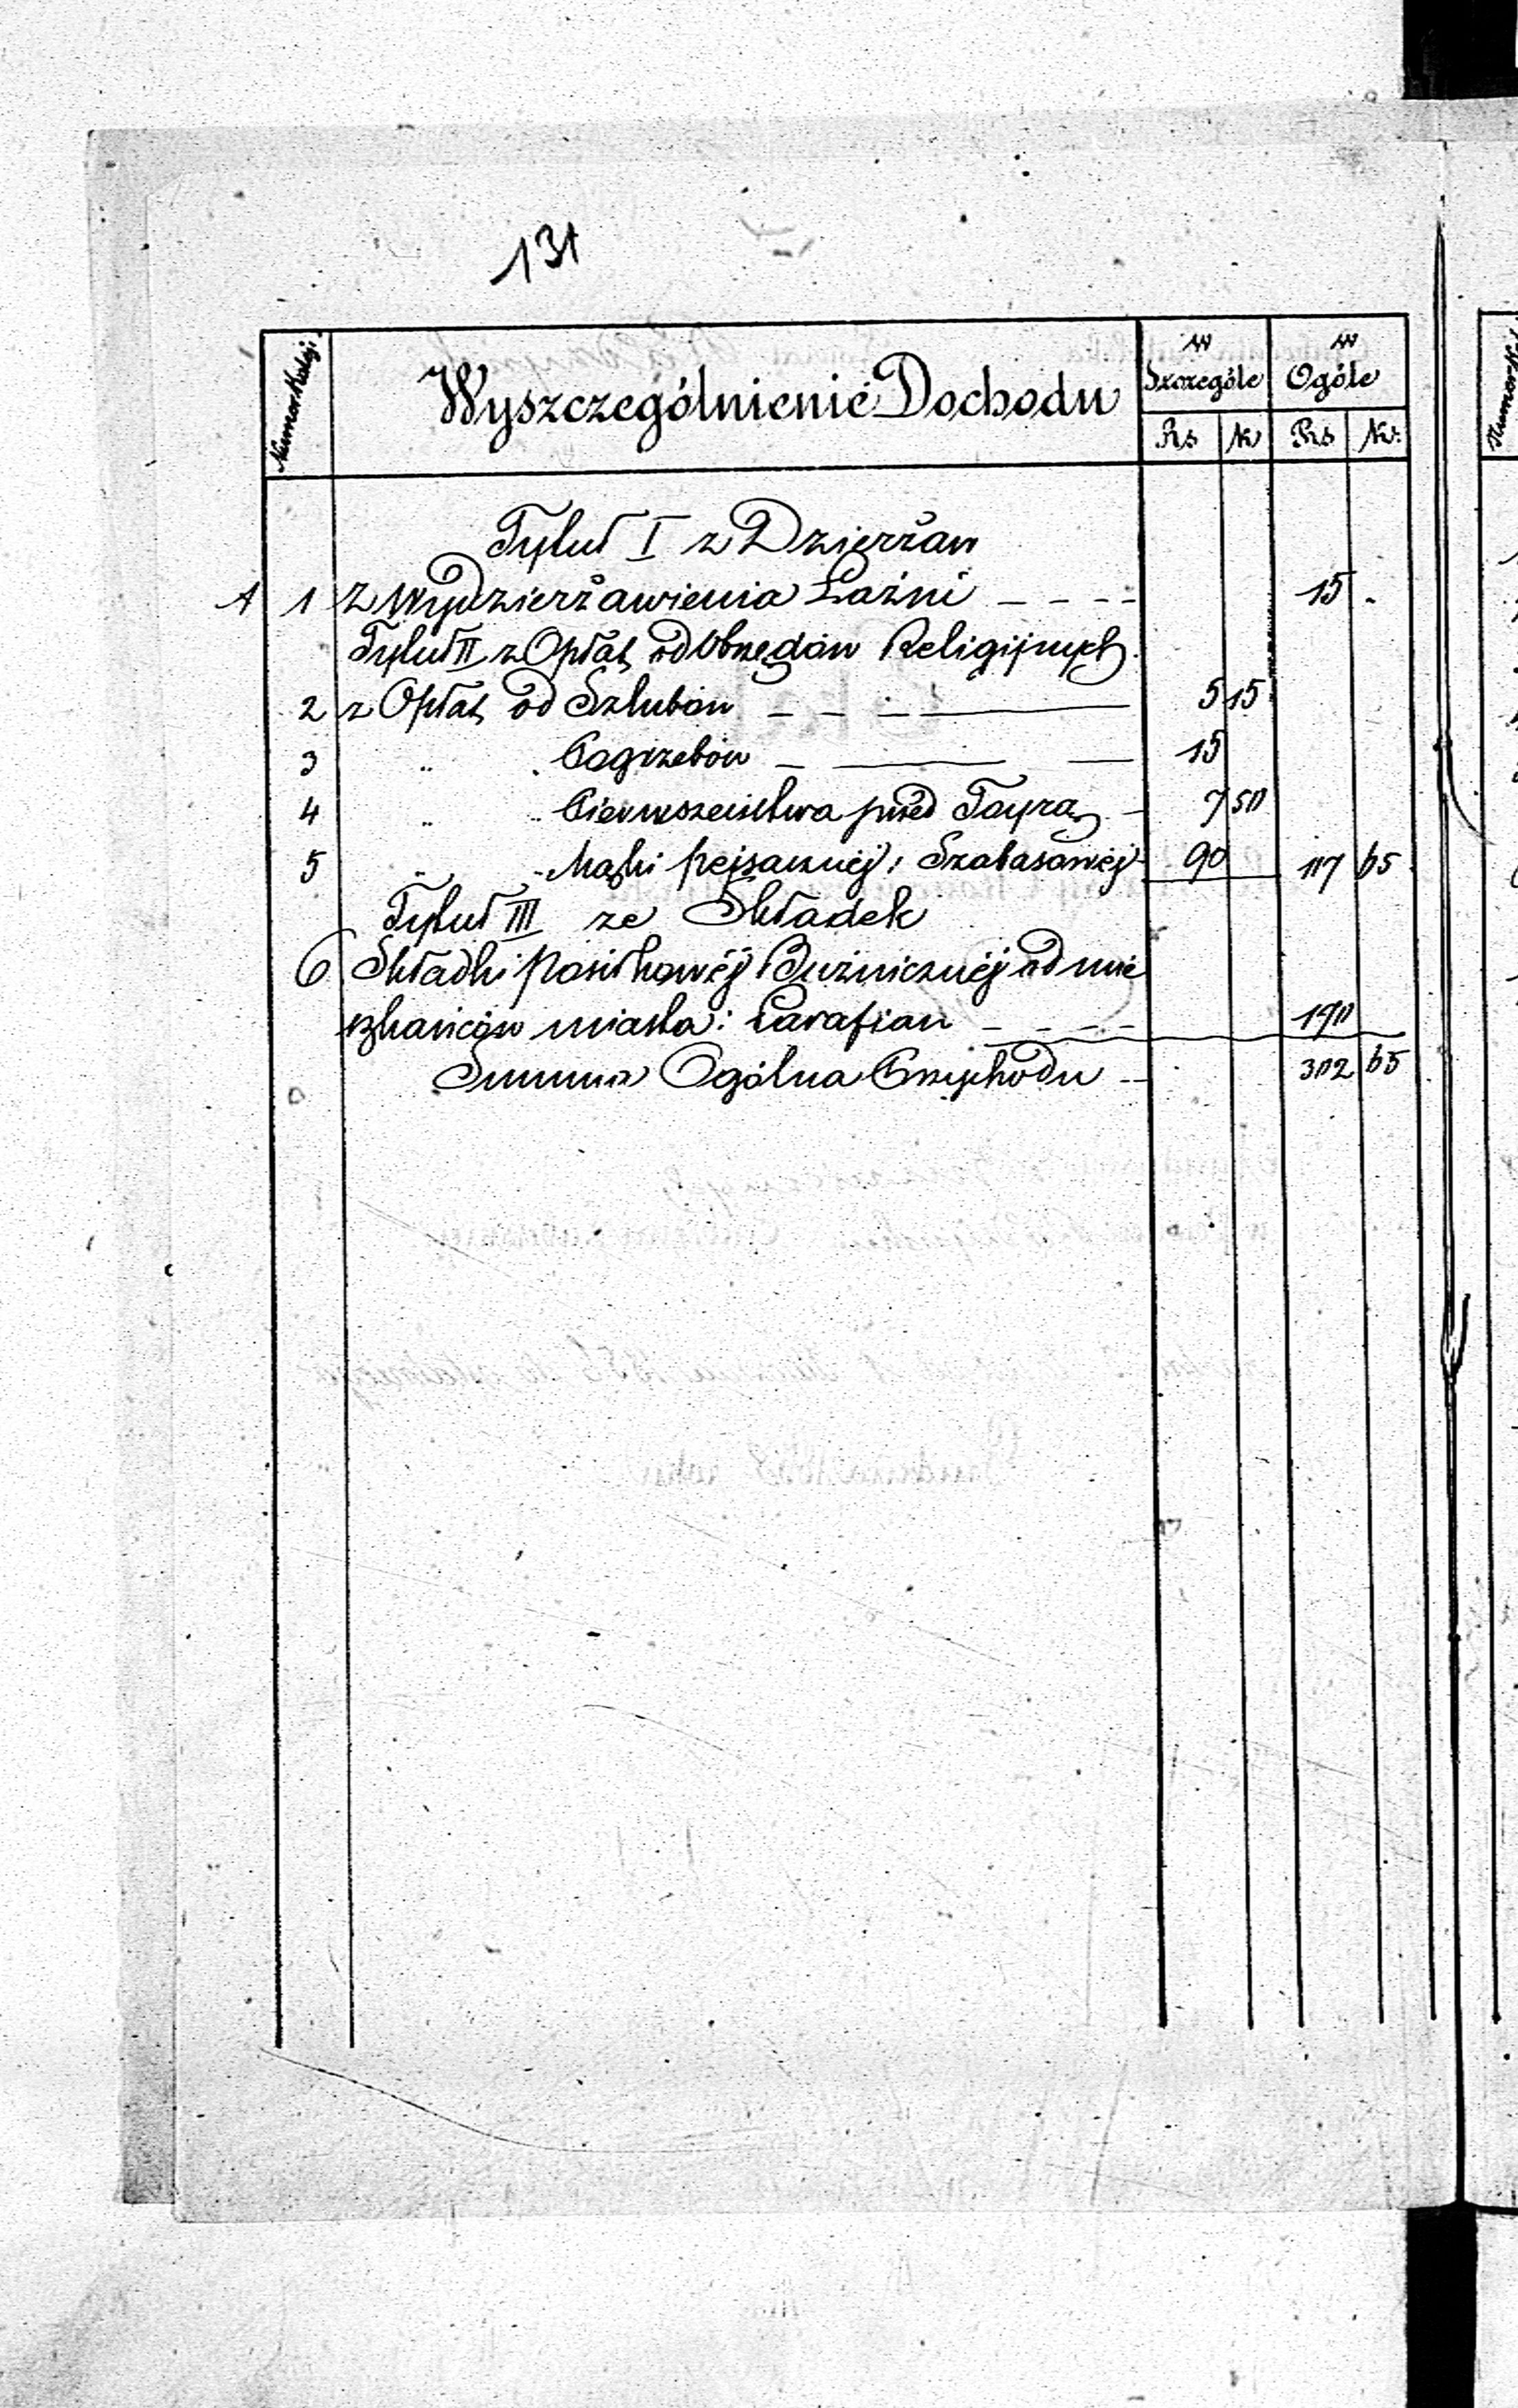 131
Numer Kolej.
Wyszczególnienie Dochodu
w Szczególe
w Ogóle
Rs K Rs K:
Tytuł I z Dzierżaw
A 1 z Wydzierżawienia Łaźni - - - - 15 -
Tytuł II z Opłat od Obrzędów Religijnych.
2 z Opłat od Szlubów - - - 5 15
3 " " Pogrzebów - 15
4 " " Pierwszeństwa przed Torą - 7 50
5 " " Mąki pejsacznéj i Szabasowéj 90 117 65
Tytuł III ze Składek
6 Składki Posiłkowéj Bużnicznéj od mie
szkańców miasta i Parafian - - - - 190
Summa Ogólna Przychodu - - 302 65